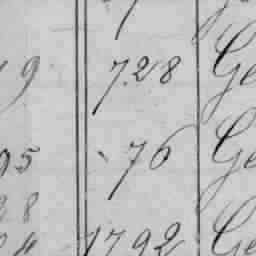 9 7.28 Ge
95 76 Ge
28
1792 Ge